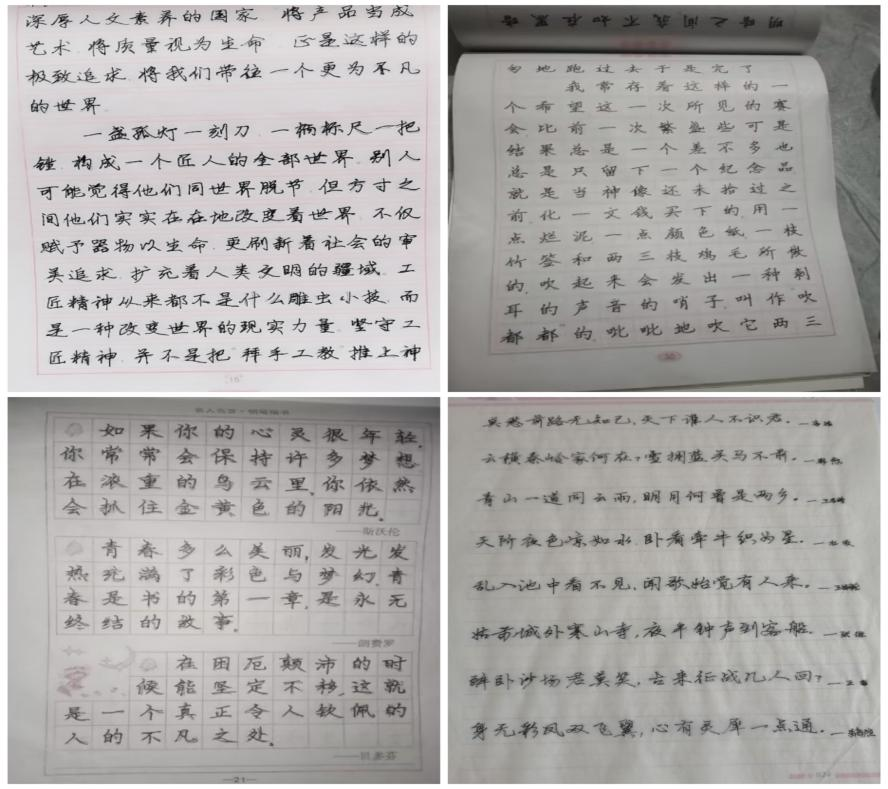 深厚人文素养的国家 将产品当成
艺术 将质量视为生命 正是这样的
极致追求 将我们带往一个更为不凡
的世界
一盏孤灯一刻刀 一柄标尺一把
锉 构成一个匠人的全部世界 别人
可能觉得他们同世界脱节 但方寸之
间他们实实在在地改变着世界 不仅
赋予器物以生命 更刷新着社会的审
美追求 扩充着人类文明的疆域 工
匠精神从来都不是什么雕虫小技 而
是一种改变世界的现实力量 坚守工
匠精神 并不是把 拜手工教 推上神
15
明晴之间或不如在黑暗
匆地跑过去于是完了
我常存着这样的一
个希望这一次所见的赛
会比前一次繁盛些可是
结果总是一个差不多也
总是只留下一个纪念品
就是当神像还未抬过之
前化一文钱买下的用一
点烂泥一点颜色纸一枝
竹签和两三枝鸡毛所做
的 吹起来会发出一种刺
耳的声音的哨子 叫作吹
都都的 吡吡地吹它两三
30
名人名言·钢笔楷书
如果你的心灵很年轻,
你常常会保持许多梦想
在浓重的乌云里,你依然
会抓住金黄色的阳光。
——斯沃伦
青春多么美丽,发光发
热充满了彩色与梦幻,青
春是书的第一章,是永无
终结的故事。
——朗费罗
在困厄颠沛的时
候能坚定不移,这就
是一个真正令人钦佩的
人的不凡之处。
——贝多芬
—21—
莫愁前路无知己,天下谁人不识君。—高适
云横秦岭家何在?雪拥蓝关马不前。—韩愈
青山一道同云雨,明月何曾是两乡。—王昌龄
天阶夜色凉如水,卧看牵牛织女星。—杜牧
乱入池中看不见,闻歌始觉有人来。—王昌龄
姑苏城外寒山寺,夜半钟声到客船。—张继
醉卧沙场君莫笑,古来征战几人回?—王翰
身无彩凤双飞翼,心有灵犀一点通。—李商隐